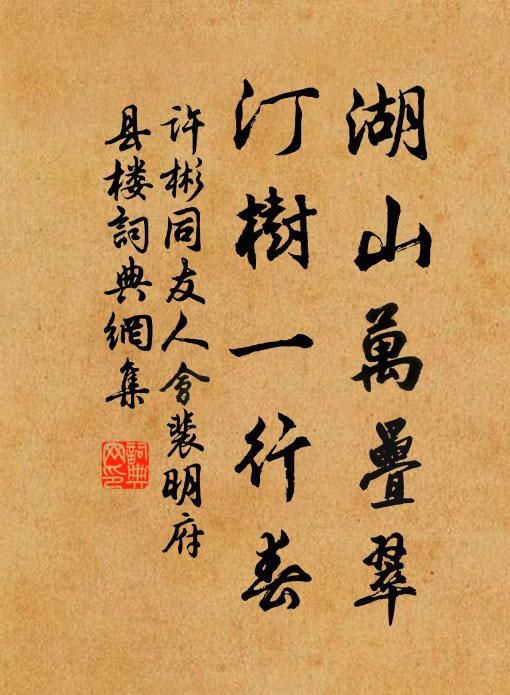 湖山萬疊翠
汀樹一行春
许彬同友人會裴明府
县楼詞典網集
詞典网印